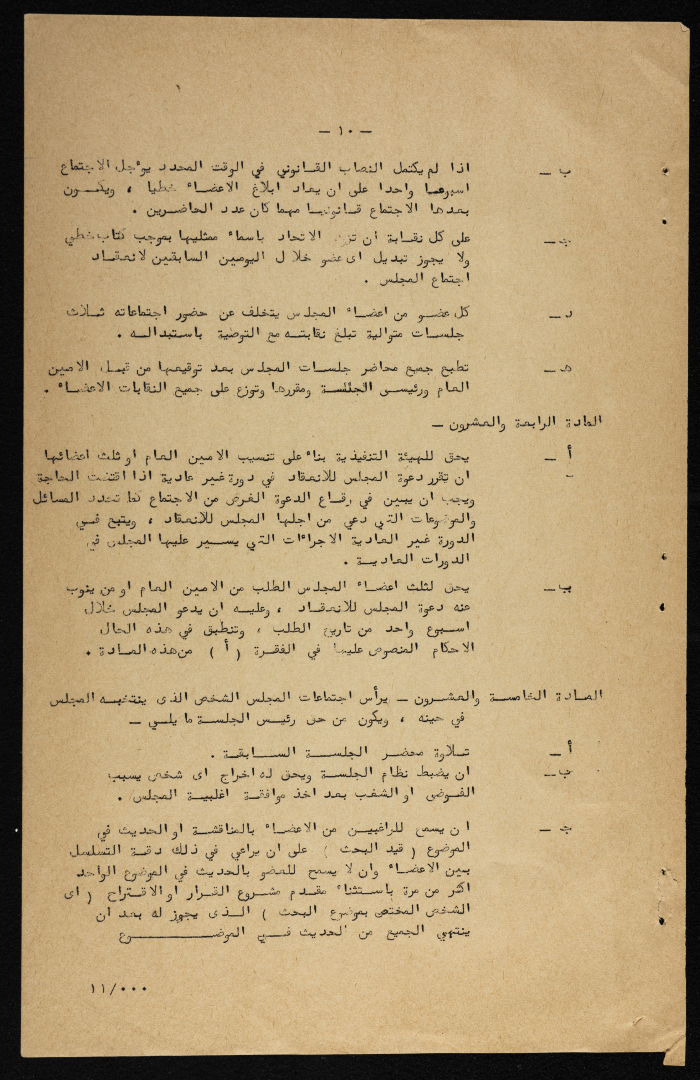 — ١٠ —
ب — اذا لم يكتمل النصاب القانوني في الوقت المحدد يوٴجل الاجتماع
اسبوعا واحدا على ان يعاد ابلاغ الاعضاء خطيا ، ويكون
بعدها الاجتماع قانونيا مهما كان عدد الحاضرين .
جـ — على كل نقابة ان تزود الاتحاد باسماء ممثليها بموجب كتاب خطي
ولا يجوز تبديل اى عضو خلال اليومين السابقين لانعقاد
اجتماع المجلس .
د — كل عضو من اعضاء المجلس يتخلف عن حضور اجتماعاته ثلاث
جلسات متوالية تبلغ نقابته مع التوصية باستبداله .
هـ — تطبع جميع محاضر جلسات المجلس بعد توقيعها من قبل الامين
العام ورئيس الجلسة ومقررها وتوزع على جميع النقابات الاعضاء .
المادة الرابعة والعشرون —
أ — يحق للهيئة التنفيذية بناء على تنسيب الامين العام او ثلث اعضائها
ان تقرر دعوة المجلس للانعقاد في دورة غير عادية اذا اقتضت الحاجة
ويجب ان يبين في رقاع الدعوة الغرض من الاجتماع كما تحدد المسائل
والموضوعات التي دعي من اجلها المجلس للانعقاد ، ويتبع في
الدورة غير العادية الاجراءات التي يسير عليها المجلس في
الدورات العادية .
ب — يحق لثلث اعضاء المجلس الطلب من الامين العام او من ينوب
عنه دعوة المجلس للانعقاد ، وعليه ان يدعو المجلس خلال
اسبوع واحد من تاريخ الطلب ، وتنطبق في هذه الحال
الاحكام المنصوص عليها في الفقرة ( أ ) من هذه المادة .
المادة الخامسة والعشرون — يرأس اجتماعات المجلس الشخص الذى ينتخبه المجلس
في حينه ، ويكون من حق رئيس الجلسة ما يلي —
أ — تلاوة محضر الجلسة السابقة .
ب — ان يضبط نظام الجلسة ويحق له اخراج اى شخص يسبب
الفوضى او الشغب بعد اخذ موافقة اغلبية المجلس .
جـ — ان يسمح للراغبين من الاعضاء بالمناقشة او الحديث في
الموضوع ( قيد البحث ) على ان يراعي في ذلك دقة التسلسل
بين الاعضاء وان لا يسمح للعضو بالحديث في الموضوع الواحد
اكثر من مرة باستثناء مقدم مشروع القرار او الاقتراح ( اى
الشخص المختص بموضوع البحث ) الذى يجوز له بعد ان
ينتهي الجميع من الحديث في الموضوع
١١/٠٠٠